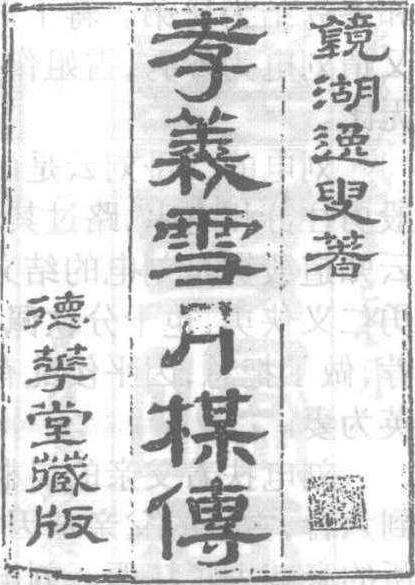 鏡湖逸叟著
孝義雪月楳傳
德華堂藏版